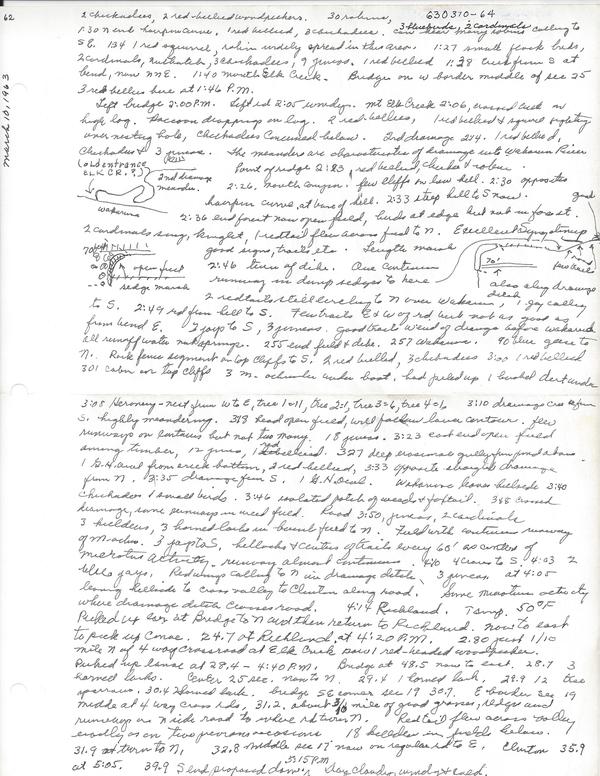 62
March 10, 1963
630310-64
2 chickadees, 2 red bellied woodpeckers. 30 robins,
3 bluebirds, 2 cardinals
1:30 N end hairpin curve, 1 red bellied, 3 chickadees. calling to
SE. 134 1 red squirrel, robin widely spread in this area. 1:27 small flock birds,
2 cardinals, nuthatch, 3 chickadees, 9 juncos. 1 red bellied 1:38 creek from S at
bend, now NNE. 1:40 mouth Elk Creek. Bridge on W border middle of sec 25
3 red bellies here at 1:46 P.M.
Left bridge 2:00 P.M. Left rd 2:05 windy. Mt Elk Creek 2:06, crossed creek on
high log. Raccoon droppings on log. 2 red bellies, 1 red bellied & squirrel fighting
over nesting hole, Chickadees Concerned below. 2nd drainage 214. 1 red bellied,
Chickadee & 3 juncos. The meanders are characteristic of drainage into Wakarusa River
(old entrance
ELK CR.?)
2nd drainage
meander
wakarusa
Point of ridge 2:23, red bellied, chickadee & robin.
2:26, mouth canyon. few cliffs on low hill. 2:30 opposite
hairpin curve, at base of hill. 2:33 steep hill to S now.
good
2:36 end forest now open field, birds at edge but not in forest.
2 cardinals sing, kinglet, 1 redtail flew across field to N. Excellent
good signs, trails etc. Length marsh
open field
sedge marsh
2:46 turn of dike. One continuous
runway in damp sedges to here
70'
also along drainage
ditch
2 redtails still circling to N over Wakarusa, 1 jay calling
to S. 2:49 rd from hill to S. Few trails E & W of rd but not as good as
from bend E. 2 jays to S, 3 juncos. good trails W end of drainage before Wakarusa
all runoff water not springs. 255 end field & dike. 257 Wakarusa. 90 blue geese to
N. Rock fence segment on top cliffs to S. 2 red bellied, 3 chickadees 3:00 1 red bellied
301 cabin on top cliffs 3 m. ochrogaster under boat. had piled up 1 bushel dirt under
3:08 Heronry - nest from W to E, tree 1=11, tree 2=1, tree 3=6, tree 4=6 3:10 drainage from
S. highly meandering. 318 head open field, will follow lower contour. few
runways on contours but not too many. 18 juncos. 3:23 east end open field
among timber, 12 juncos, 1 red bellied. 327 deep erosional gully from pond above.
1 G.H. owl from creek bottom, 2 red bellied, 3:33 opposite straight drainage
from N. 3:35 drainage from S. 1 G.H. Owl. Wakarusa leaves hillside 3:40
Chickadees 1 small birds. 3:46 isolated patch of weeds & foxtail. 348 crossed
drainage, some runways in weed field. Road 3:50, juncos, 2 cardinals
3 killdeer, 3 horned larks in burnt field to N. Field with continuous runway
of M-ochro. 3 jays to S, hillocks & centers of trails every 60' as centers of
microtus activity - runway almost continuous. 4:00 4 crows to S. 4:03 2
blue jays, Redwing calling to N in drainage ditch, 3 juncos, at 4:05
leaving hillside to cross valley to Clinton along road. Some microtus activity
where drainage ditch crosses road. 4:14 Richland. Temp. 50°F
Picked up car at Bridge to N and then return to Richland. now to east
to pick up canoe. 24.7 at Richland, at 4:20 P.M. 2.80 just 1/10
mile N of 4 way crossroad at Elk Creek saw 1 red-headed woodpecker.
Picked up canoe at 28.4 - 4:40 P.M. Bridge at 48.5 now to east. 28.7 3
horned larks. Center 25 sec. now to N. 29.4 1 horned lark, 29.9 12 tree
sparrows. 30.4 2 horned lark. bridge SE corner sec 19 30.7. E border sec 19
middle at 4 way cross rds, 31.2. about 3/10 mile of good grasses, sedges and
runways on N side road to where rd turn N. Red tail flew across valley
exactly as on two previous occasions 18 killdeer in fields below.
31.9 at turn to N, 32.8 middle sec 17 now on regular rd to E. Clinton 35.9
at 5:05. 39.9 S end proposed dam 5:15 P.M. Day Cloudy, windy & cold.